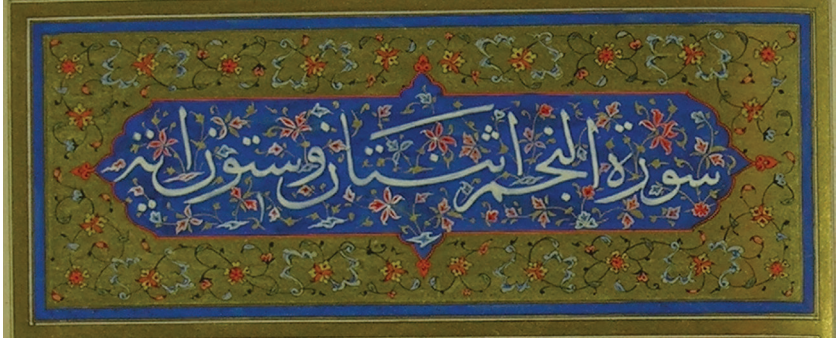 سورة النجم اثنتان وستون اية